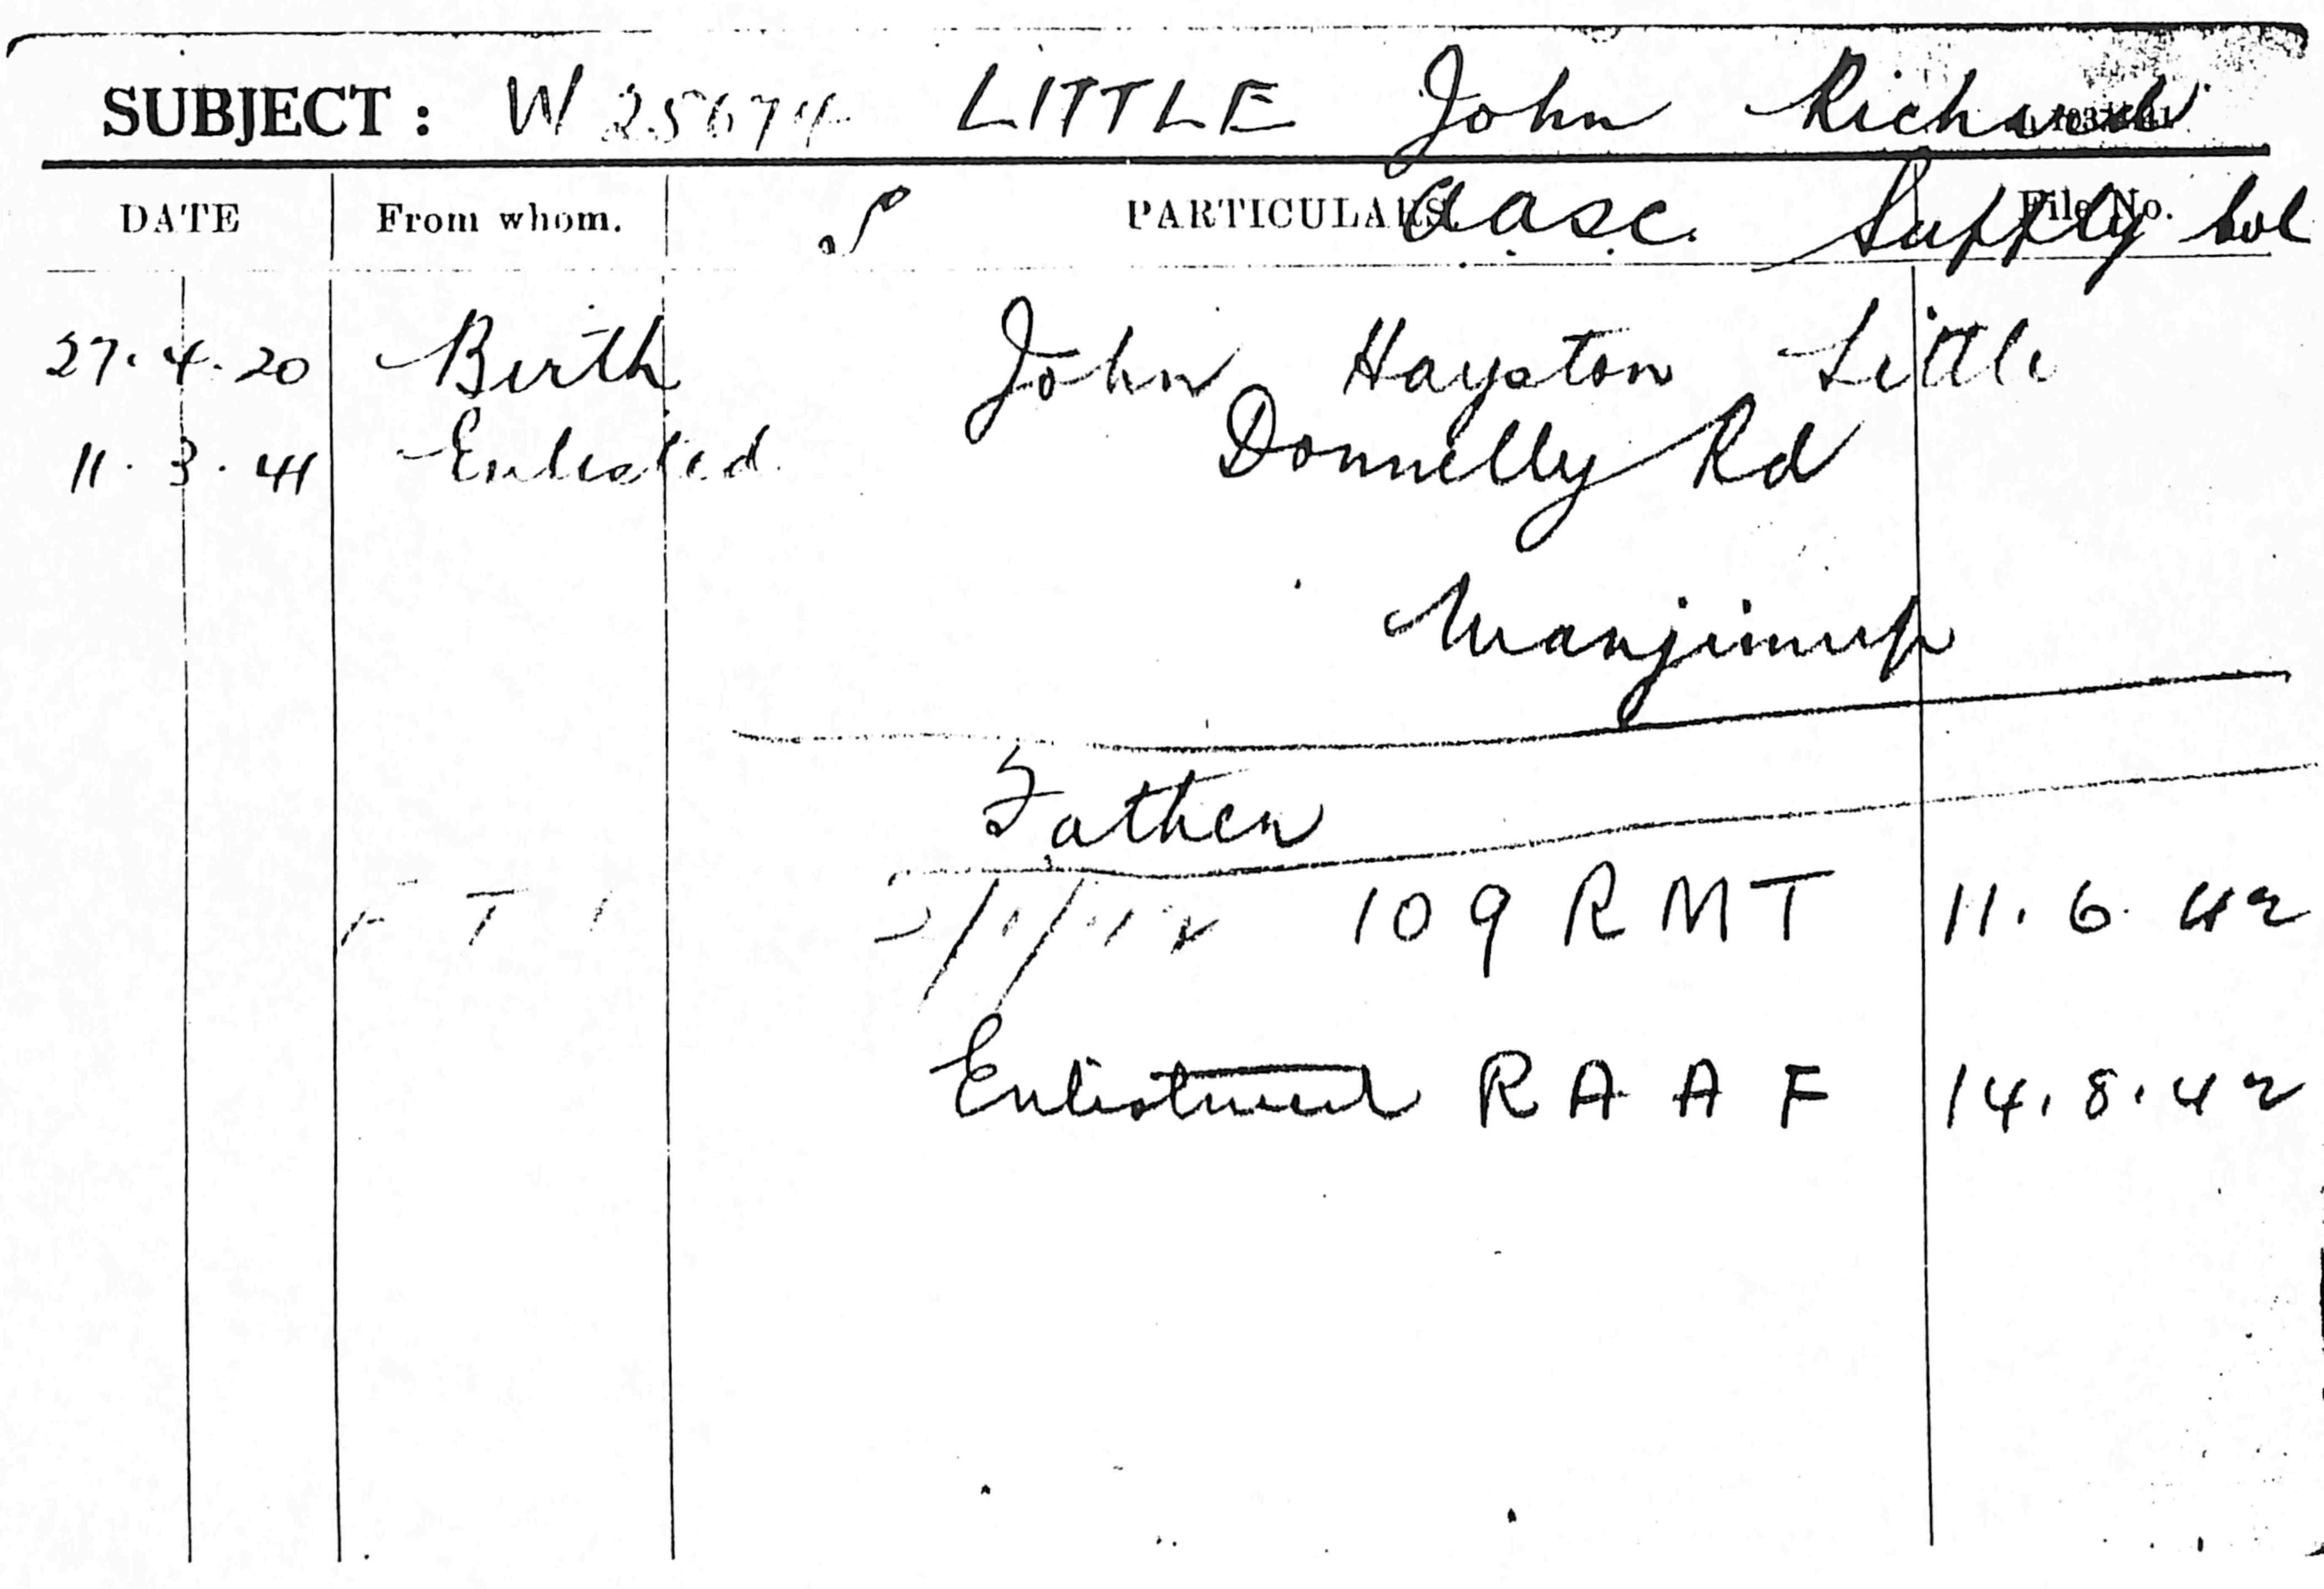 SUBJECT : W 25674 LITTLE John Richard
DATE From whom. S PARTICULARS File No.
aasc. Supply Col
27. 4. 20 Birth John Hayston Little
11. 3. 41 Enlisted Donnelly Rd
Manjimup
Father
F T 109 RMT 11. 6. 42
Enlistment R A A F 14. 8. 42